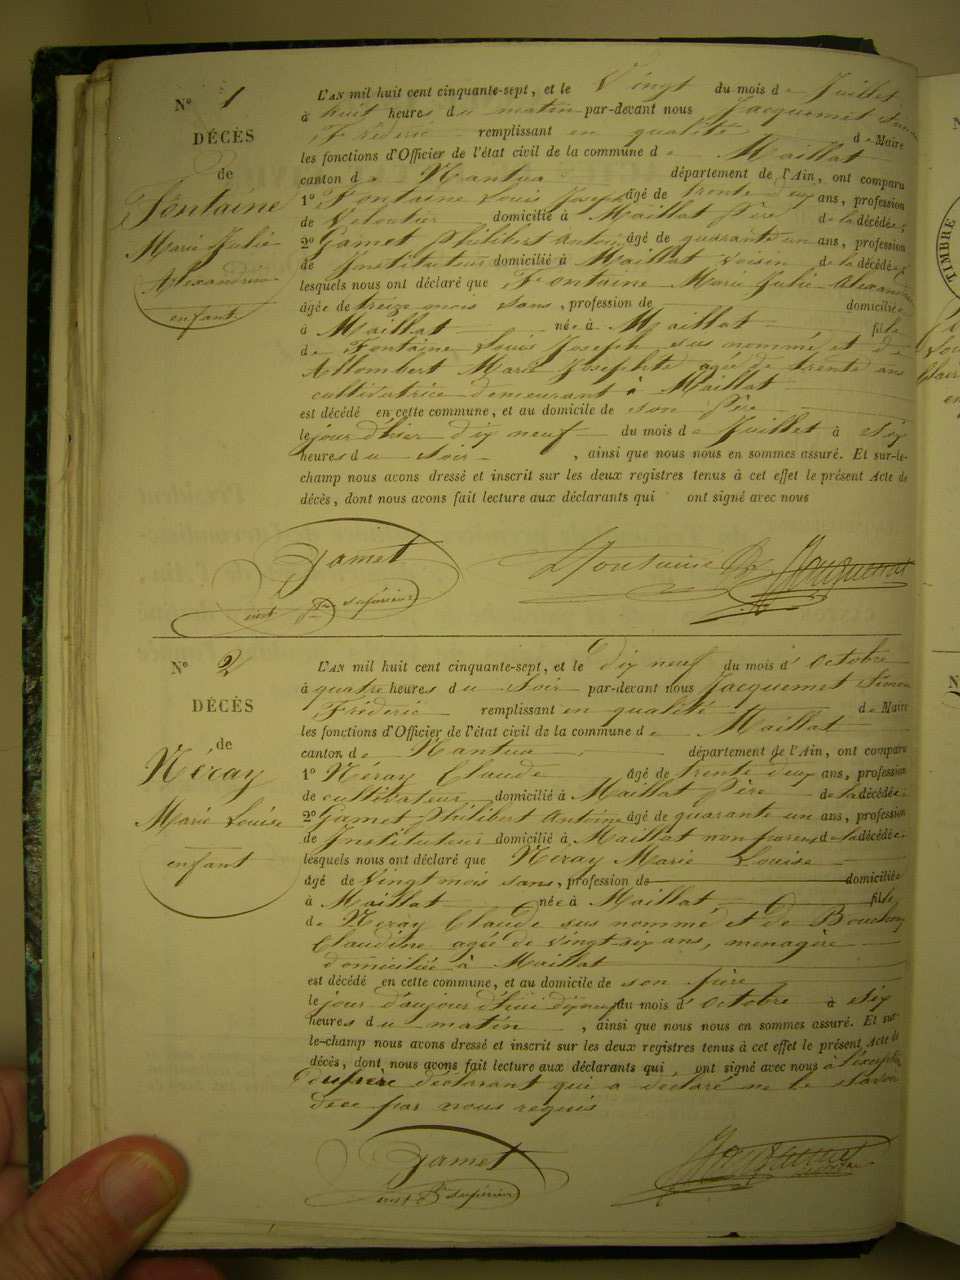 N° 1
DÉCÈS
de
Fontaine
Marie Julie
Alexandrine
enfant
L'AN mil huit cent cinquante-sept, et le Vingt du mois de Juillet
à huit heures du matin par-devant nous Jacquemet Simon
Fréderic remplissant en qualité de Maire
les fonctions d'Officier de l'état civil de la commune de Maillat
canton de Nantua département de l'Ain, ont comparu
1° Fontaine Louis Joseph âgé de trente deux ans, profession
de domicilié à Maillat Père de la décédée,
2° Gamet Philibert Antoine âgé de quarante un ans, profession
de Instituteur domicilié à Maillat voisin de la décédée,
lesquels nous ont déclaré que Fontaine Marie Julie Alexandrine
âgée de treize mois sans, profession de domiciliée
à Maillat née à Maillat fille
de Fontaine Louis Joseph sus nommé et de
Allombert Marie Josephte agée de trente ans
cultivatrice demeurant à Maillat
est décédé en cette commune, et au domicile de son Père
le jour d'hier dix neuf du mois de Juillet à six
heures du soir, ainsi que nous nous en sommes assuré. Et sur-le-
champ nous avons dressé et inscrit sur les deux registres tenus à cet effet le présent Acte de
décès, dont nous avons fait lecture aux déclarants qui ont signé avec nous
Gamet
inst supérieur
Fontaine
Jacquemet
N° 2
DÉCÈS
de
Néray
Marie Louise
enfant
L'AN mil huit cent cinquante-sept, et le Dix neuf du mois d'Octobre
à quatre heures du soir par-devant nous Jacquemet Simon
Fréderic remplissant en qualité de Maire
les fonctions d'Officier de l'état civil de la commune de Maillat
canton de Nantua département de l'Ain, ont comparu
1° Néray Claude âgé de trente deux ans, profession
de cultivateur domicilié à Maillat Père de la décédée
2° Gamet Philibert Antoine âgé de quarante un ans, profession
de Instituteur domicilié à Maillat non parent de la décédée
lesquels nous ont déclaré que Néray Marie Louise
âgé de Vingt mois sans, profession de domiciliée
à Maillat née à Maillat, fille
de Néray Claude sus nommé et de Bouchoy
Claudine agée de vingt six ans, menagère
domiciliée à Maillat
est décédé en cette commune, et au domicile de son père
le jour d'aujourd'hui dix neuf du mois d'Octobre à six
heures du matin, ainsi que nous nous en sommes assuré. Et sur-
le-champ nous avons dressé et inscrit sur les deux registres tenus à cet effet le présent Acte de
décès, dont nous avons fait lecture aux déclarants qui ont signé avec nous à l'exception
du père déclarant qui a déclaré ne le savoir
de ce par nous requis
Gamet
inst supérieur
Jacquemet
TIMBRE